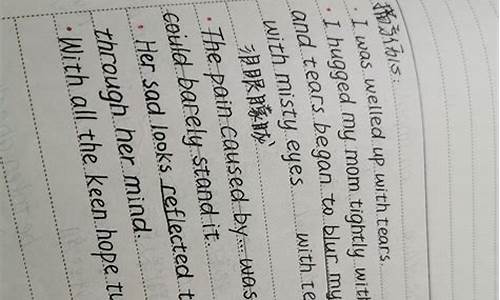 描述性心:
· I was welled up with tears.
· I hugged my mom tightly with
and tears began to blur my
with misty eyes with te
泪眼朦胧
· The pain caused by... was
could barely stand it.
· Her sad looks reflected t
through her mind.
· With all the keen hope tu